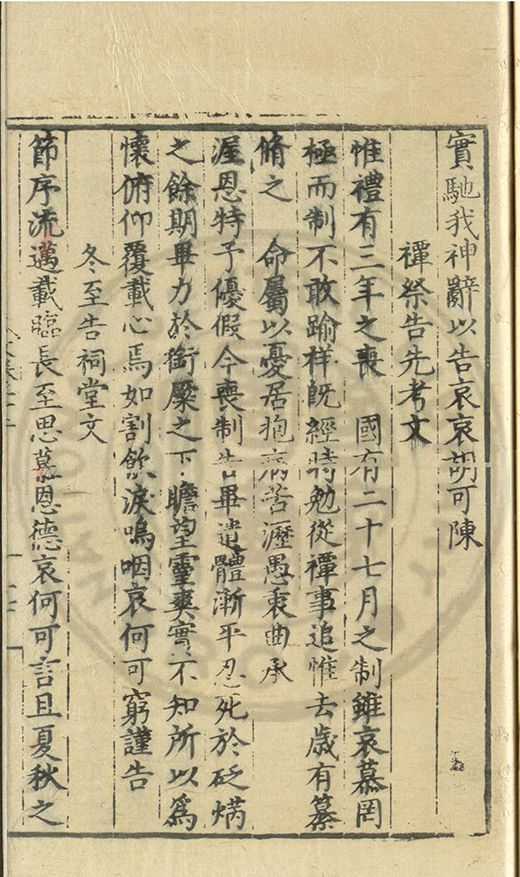 實馳我神辭以告哀哀胡可陳
禫祭告先考文
惟禮有三年之喪 國有二十七月之制雖哀慕罔
極而制不敢踰祥旣經時勉從禫事追惟去歲有纂
脩之 命屬以憂居抱病苦瀝愚衷曲承
渥恩特予優假今喪制告畢遺體漸平忍死於砭焫
之餘期畢力於銜糜之下瞻望靈爽實不知所以爲
懷俯仰覆載心焉如割飲淚嗚咽哀何可窮謹告
冬至告祠堂文
節序流邁載臨長至思慕恩德哀何可言且夏秋之